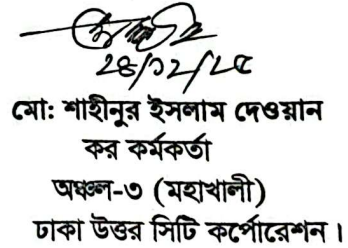 ২৪/১২/২৫
মো: শাহীনুর ইসলাম দেওয়ান
কর কর্মকর্তা
অঞ্চল-৩ (মহাখালী)
ঢাকা উত্তর সিটি কর্পোরেশন।